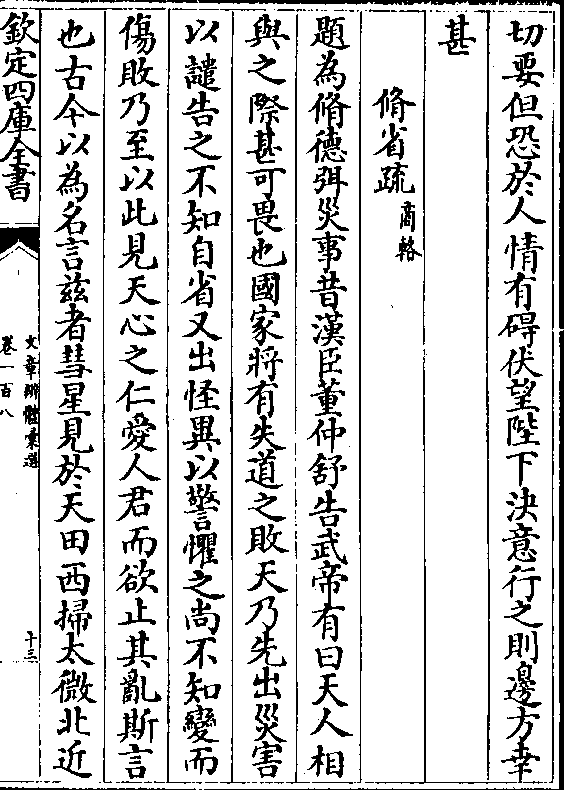 切要但恐於人情有碍伏望陛下決意行之則邊方幸
甚
脩省疏商輅
題為脩德弭災事昔漢臣董仲舒告武帝有曰天人相
與之際甚可畏也國家將有失道之敗天乃先出災害
以譴告之不知自省又出怪異以警懼之尚不知變而
傷敗乃至以此見天心之仁愛人君而欲止其亂斯言
也古今以為名言兹者彗星見於天田西掃太微北近
欽定四庫全書
文章辨體彙選
卷一百八
十三